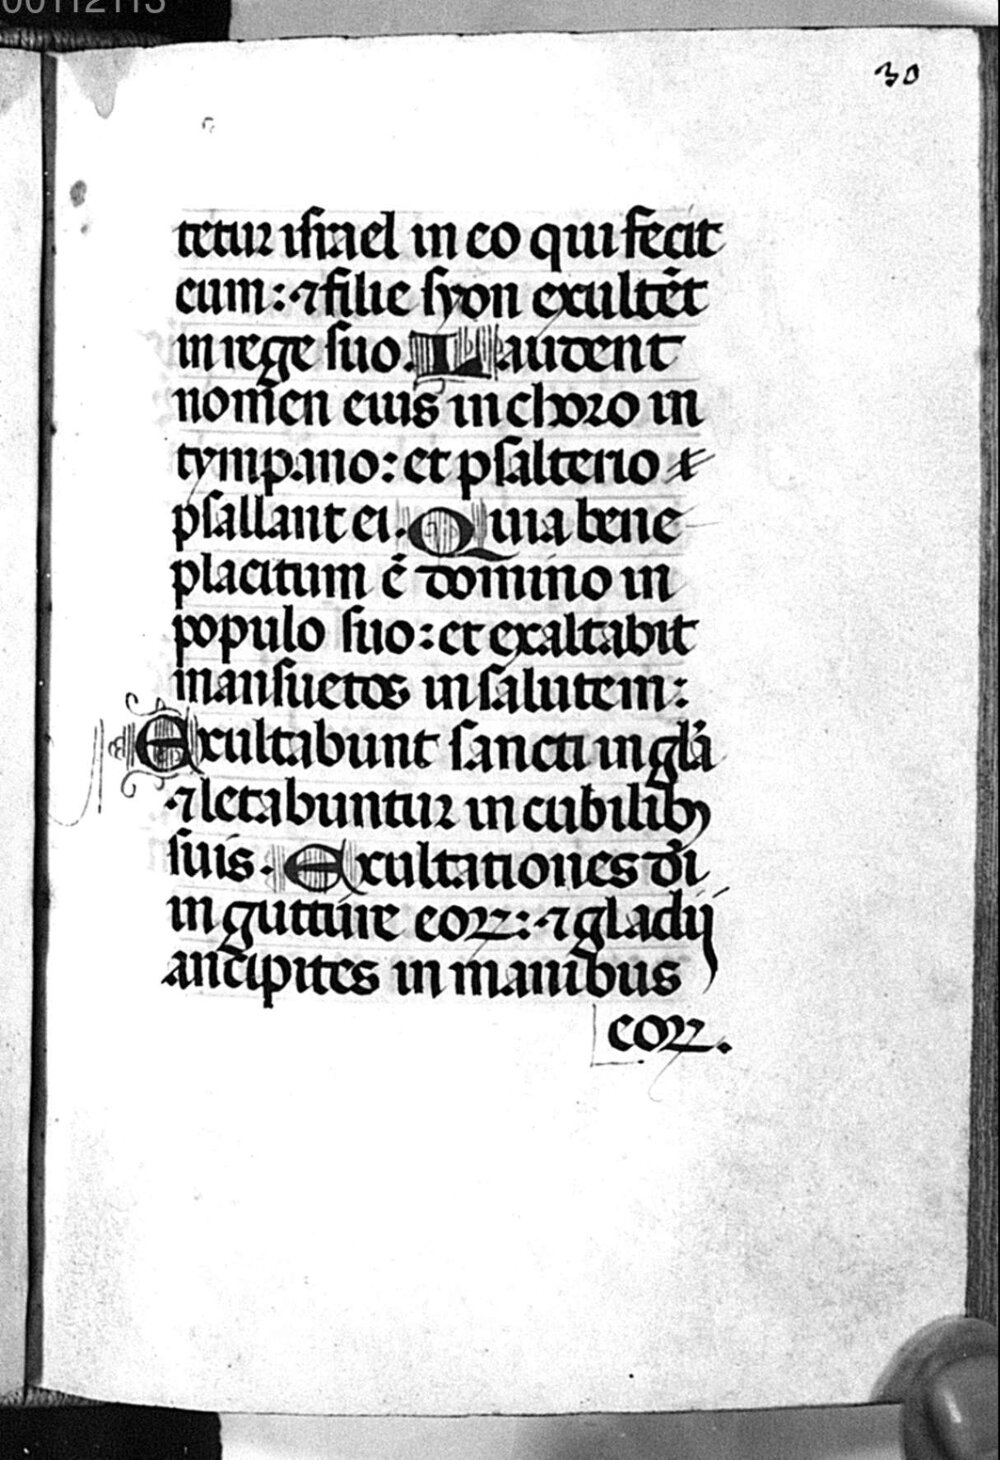 00112113
30
tetur isrɑel in eo qui fecit
eum: ⁊ filie syon exultēt
in rege suo. Laudent
nomen eius in choro in
tympano: et psalterio
psallant ei. Quia bene
placitum ē domino in
populo suo: et exaltabit
mansuetos in salutem:
Exultabunt sancti in gl̄a
⁊ letabuntur in cubilibꝫ
suis. Exultationes dī
in gutture eoꝝ: ⁊ gladij
ancipites in manibus
eoꝝ.